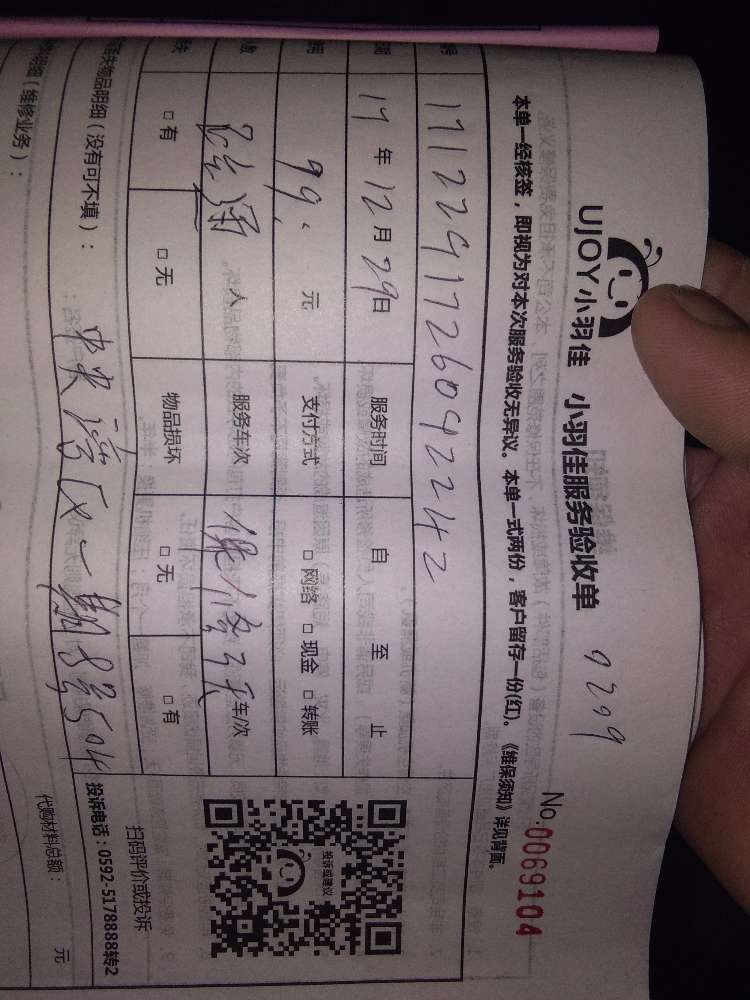 UJOY小羽佳 小羽佳服务验收单 0209
No.0069104
本单一经核签，即视为对本次服务验收无异议。本单一式两份，客户留存一份(红)。《维保须知》详见背面。
1712291726092242
17年12月29日 服务时间 自 至 止
99. 元 支付方式 □ 网络 □ 现金 □ 转账
人 服务车次 车/次
□ 有 □ 无 物品损坏 □ 无 □ 有
物品明细（没有可不填）： 中央 一期8号504
明细（维修业务）：
投诉或建议
扫码评价或投诉
投诉电话：0592-5178888转2
代购材料总额： 元